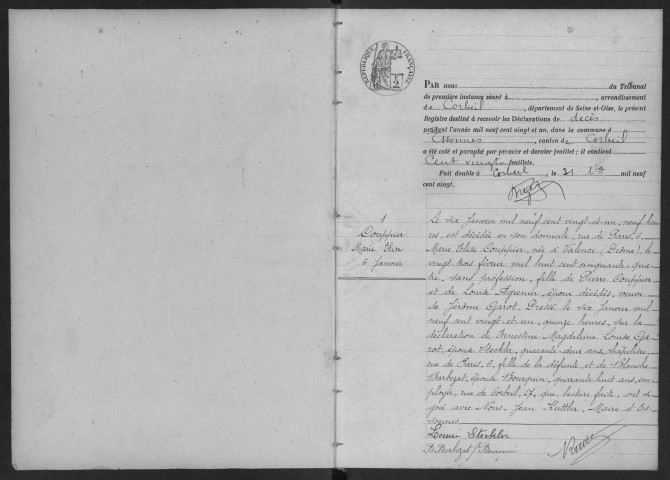 RÉPUBLIQUE FRANÇAISE
PAR nous du Tribunal
de première instance séant à , arrondissement
de Corbeil, département de Seine-et-Oise, le présent
Registre destiné à recevoir les Déclarations de décès
pendant l'année mil neuf cent vingt et un, dans la commune d
Essonnes, canton de Corbeil
a été coté et paraphé par premier et dernier feuillet; il contient
Cent vingt feuillets.
Fait double à Corbeil, le 31 Xbre mil neuf
cent vingt.
1
Couppier
Marie Elise
6 Janvier
Le six Janvier mil neuf cent vingt et un, neuf heu
res, est décédée en son domicile, rue de Paris, 6,
Marie Elise Couppier, née à Valence (Drôme), le
vingt trois février mil huit cent cinquante qua
tre, sans profession, fille de Pierre Couppier
et de Louise Agrenier, époux décédés, veuve
de Jérôme Garot. Dressé le six Janvier mil
neuf cent vingt et un, quinze heures, sur la
déclaration de Ernestine Magdeleine Louise Ga
rot, épouse Steckler, quarante deux ans, chapelière
rue de Paris, 6, fille de la défunte, et de Blanche
Barbezat, épouse Bourquin, quarante huit ans, em
ployée, rue de Corbeil, 27, qui, lecture faite, ont si
gné avec Nous, Jean Kuttler, Maire d'Es
sonnes.
Louise Steckler
B. Barbezat f. Bourquin